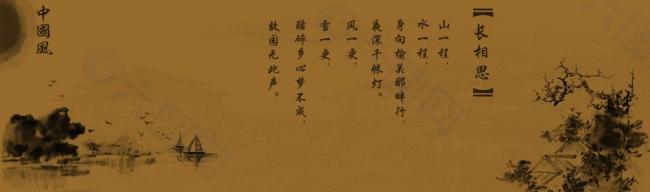 【长相思】
山一程，
水一程，
身向榆关那畔行，
夜深千帐灯。
风一更，
雪一更，
聒碎乡心梦不成，
故园无此声。
中國風